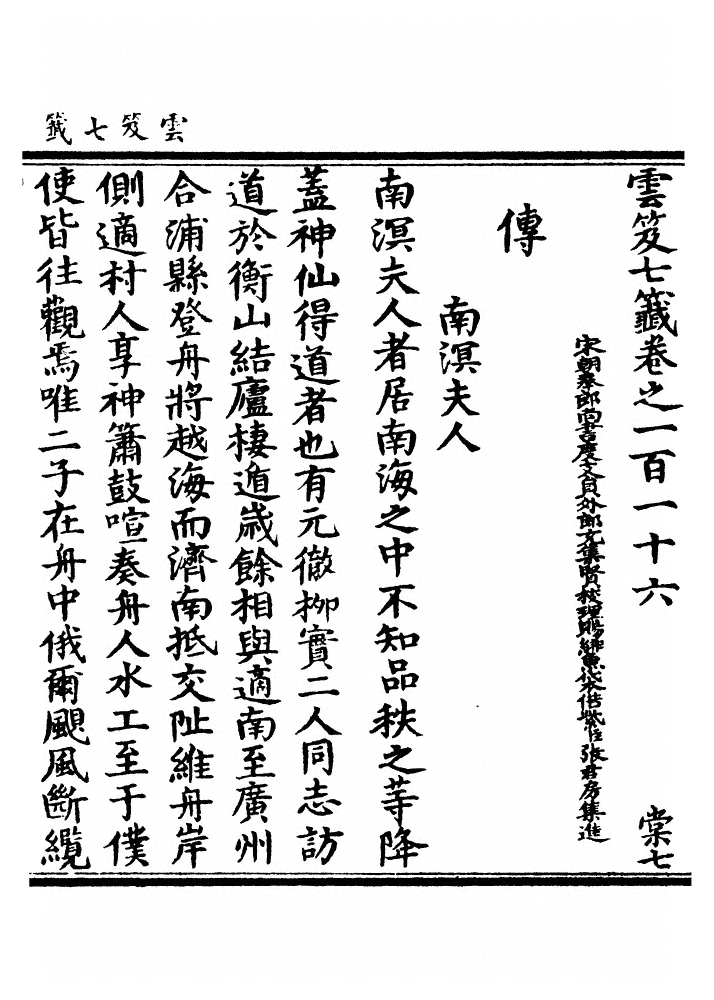 雲笈七籤
雲笈七籤卷之一百一十六
棠七
宋朝奉郎尚書度支員外郎充集賢校理賜緋魚袋借紫臣張君房集進
傳
南溟夫人
南溟夫人者居南海之中不知品秩之等降
蓋神仙得道者也有元徹栁實二人同志訪
道於衡山結廬棲遁歲餘相與適南至廣州
合浦縣登舟將越海而濟南抵交阯維舟岸
側適村人享神簫鼓喧奏舟人水工至于僕
使皆往觀焉唯二子在舟中俄爾颶風斷纜